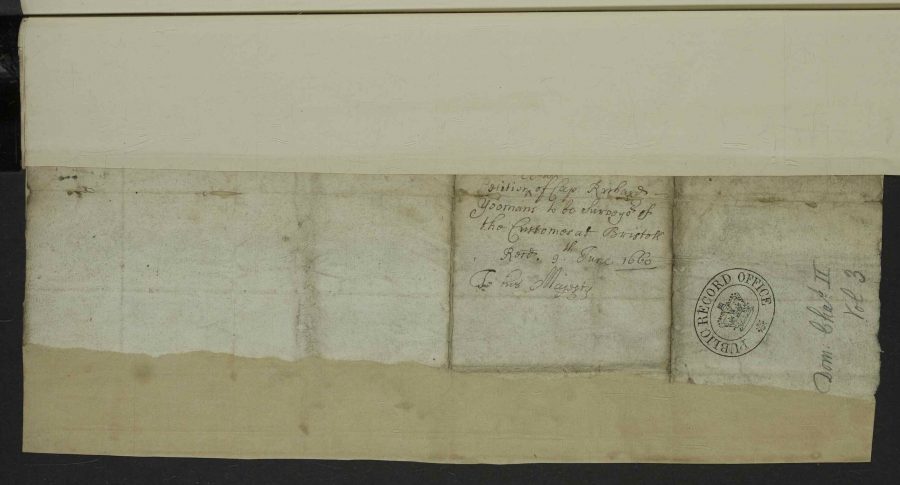 Petition of Cap. Richard
Yeomans to be Surveyor of
the Customes at Bristoll
Rd. 9th June 1660
To his Majesty
PUBLIC RECORD OFFICE
Dom. Chas. II
Vol 3